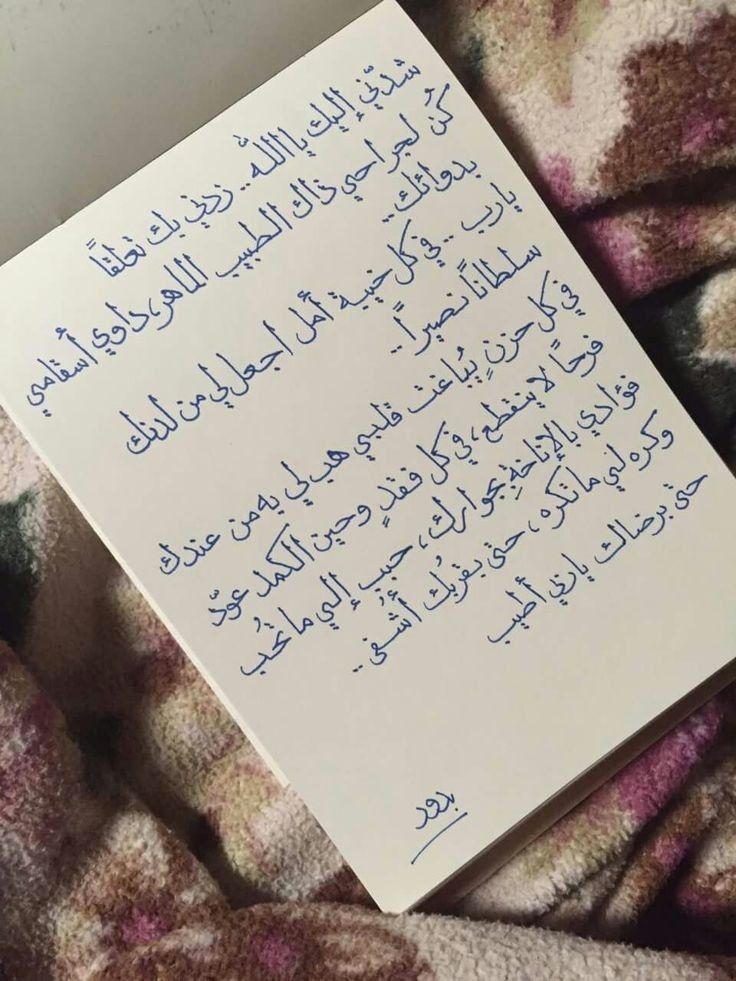 شدّني إليك يا الله.. زدني بك تعلقاً
كُن لجراحي ذاك الطبيب الماهر، داوي أسقامي
بدوائك..
يارب .. في كل خيبة أمل اجعل لي من لدنك
سلطاناً نصيراً..
في كل حزنٍ يُباغت قلبي هب لي به من عندك
فرحاً لا ينقطع، في كل فقدٍ وحين الكمد عوّد
فؤادي بالإناخةِ بجوارك، حبب إلي ما تُحب
وكره لي ما تكره، حتى بقربك أُشفى..
حتى برضاك ياربي أطيب
بدور